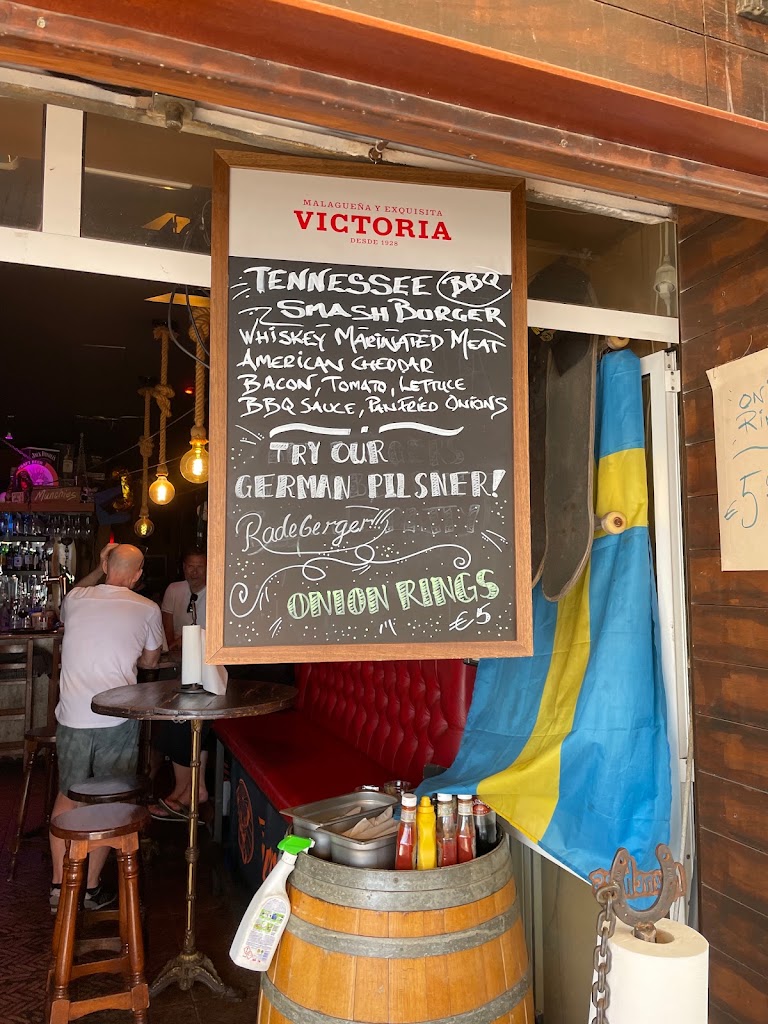 MALAGUEÑA Y EXQUISITA
VICTORIA
DESDE 1928
TENNESSEE BBQ
SMASH BURGER
WHISKEY MARINATED MEAT
AMERICAN CHEDDAR
BACON, TOMATO, LETTUCE
BBQ SAUCE, PANFRIED ONIONS
TRY OUR
GERMAN PILSNER!
Radeberger!!!
ONION RINGS
€5
Munchies
ON
RIN
€5